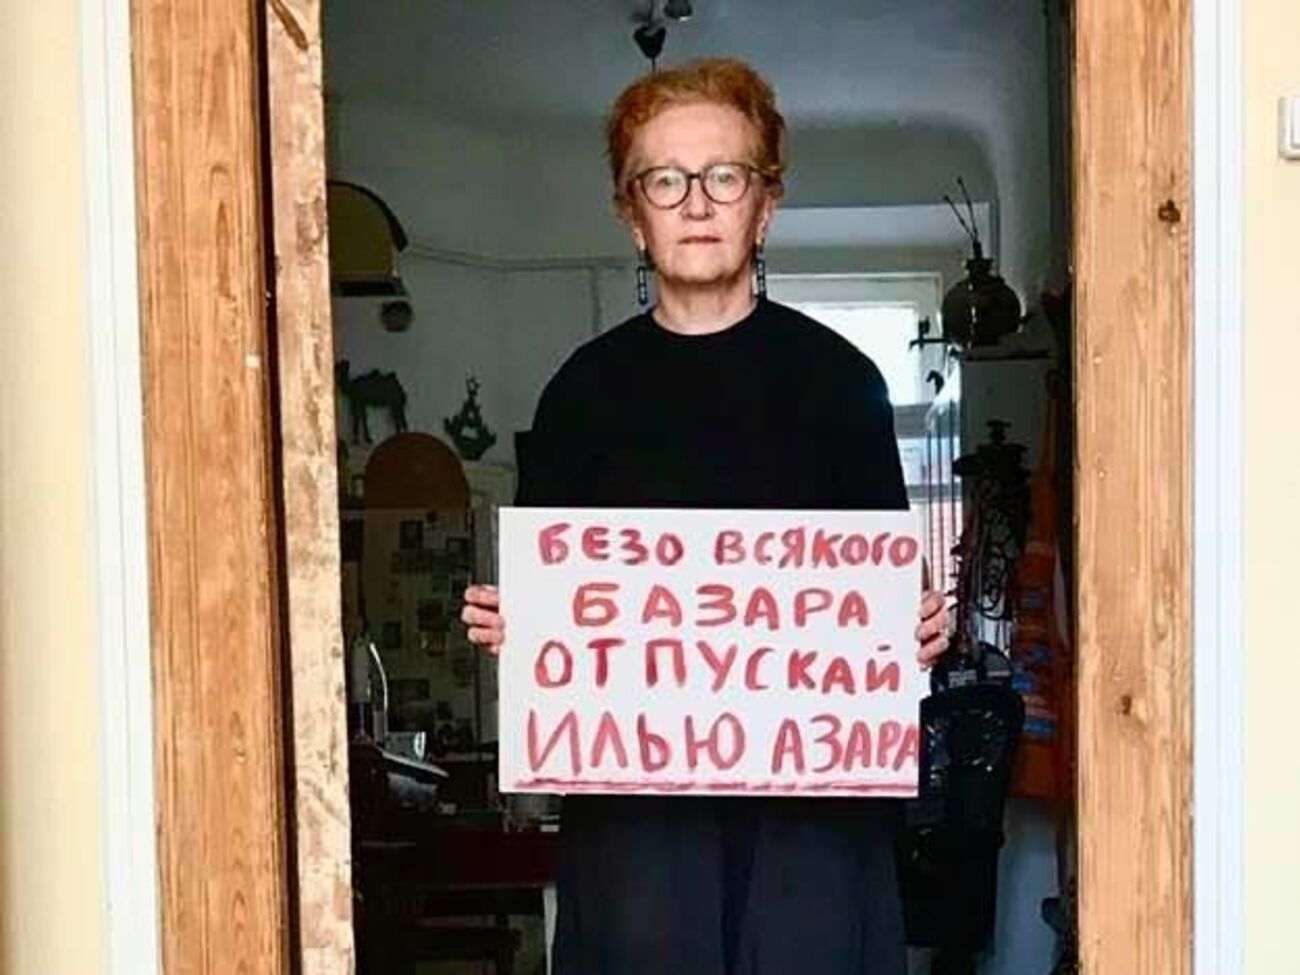 БЕЗО ВСЯКОГО
БАЗАРА
ОТПУСКАЙ
ИЛЬЮ АЗАРА